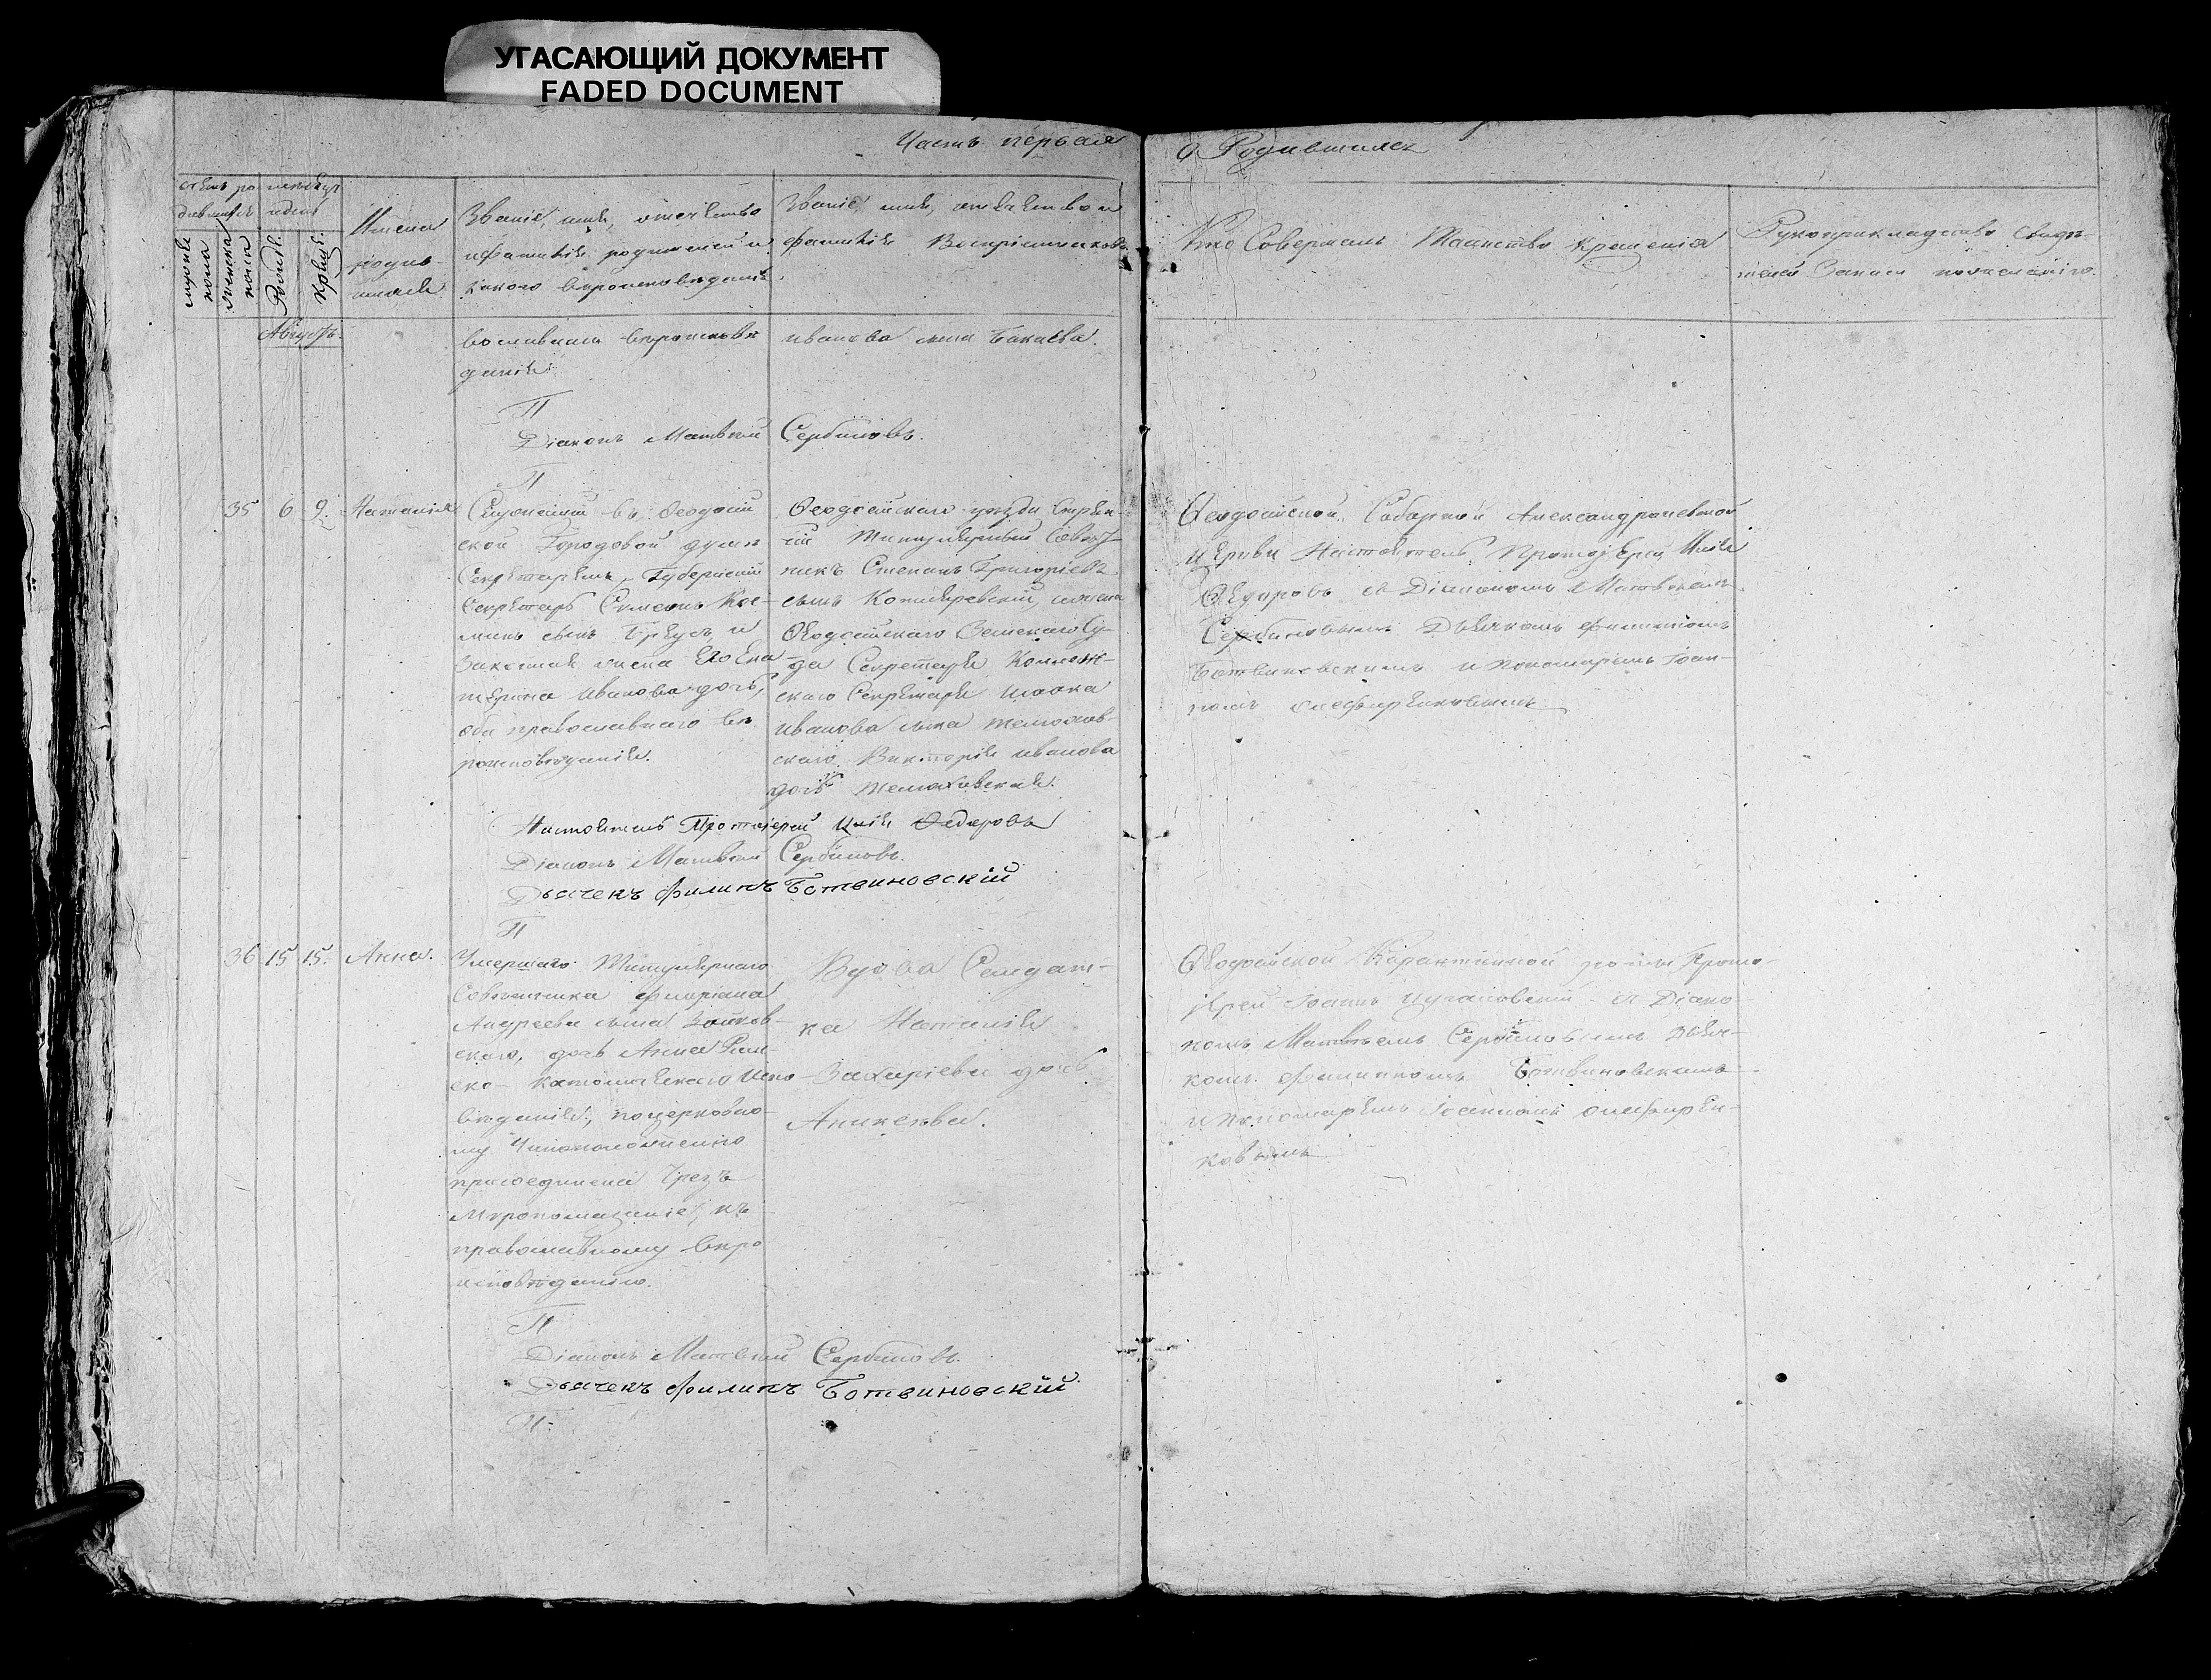 УГАСАЮЩИЙ ДОКУМЕНТ
FADED DOCUMENT
Часть первая
о Родившихся
Счетъ ро
дившихся
мужеска
пола
женска
пола
мѣсяцъ
и день
Рожден.
Крещ.
Имена
родив-
шихся
Званіе, имя, отчество
и фамилія родителей и
какого вѣроисповѣданія
Званіе, имя, отчество и
фамилія Воспріемниковъ
Кто Совершалъ Таинство Крещенія
Рукоприкладство Свидѣ-
телей Записи по желанію.
Августъ.
вославнаго вѣроисповѣ
данія
П
Діаконъ Матвѣй Сербиновъ.
П
иванова сына Бакаева.
35 6 9. Наталія
Служащій въ Ѳеодосій
ской Городовой думѣ
Секретаремъ, Губернскій
Секретарь Симеонъ
сынъ и
Законная жена Его Ека-
терина Иванова дочь,
оба православнаго вѣ
роисповѣданія.
Ѳеодосійскаго уѣзда Стряп-
чій Титулярный Совѣт-
никъ Степанъ Григоріевъ
сынъ Котляревскій, и жена
Ѳеодосійскаго Земскаго Су-
да Секретаря Коллеж-
скаго Секретаря Исаака
Иванова сына
скаго Викторія Иванова
дочь
Ѳеодосійской Соборной Александроневской
Церкви Настоятель Протоіерей Илія
Ѳедоровъ съ Діакономъ Матвѣемъ
Сербиновымъ Дьячкомъ Филиппомъ
Ботвиновскимъ и Пономаремъ Іоан-
номъ
Настоятель Протоіерей Илія Ѳедоровъ
Діаконъ Матвѣй Сербиновъ.
Дьячекъ Филипъ Ботвиновскій
П
36 15 15. Анна.
Умершаго Титулярнаго
Совѣтника Флоріана
Андреева сына
скаго, дочь Анна Рим-
ско-католическаго Испо
вѣданія, по церковно-
му Чиноположенію
присоединена Чрезъ
Мѵропомазаніе, къ
православному вѣро
исповѣданію.
Вдова Солдат-
ка Наталія
Захаріева дочь
Аникеева.
Ѳеодосійской Карантинной Прото-
іерей Іоаннъ съ Діако-
номъ Матвѣемъ Сербиновымъ Дьяч-
комъ Филиппомъ Ботвиновскимъ
и Пономаремъ Іоанномъ
ковымъ
П
Діаконъ Матвѣй Сербиновъ.
Дьячекъ Филипъ Ботвиновскій
П.